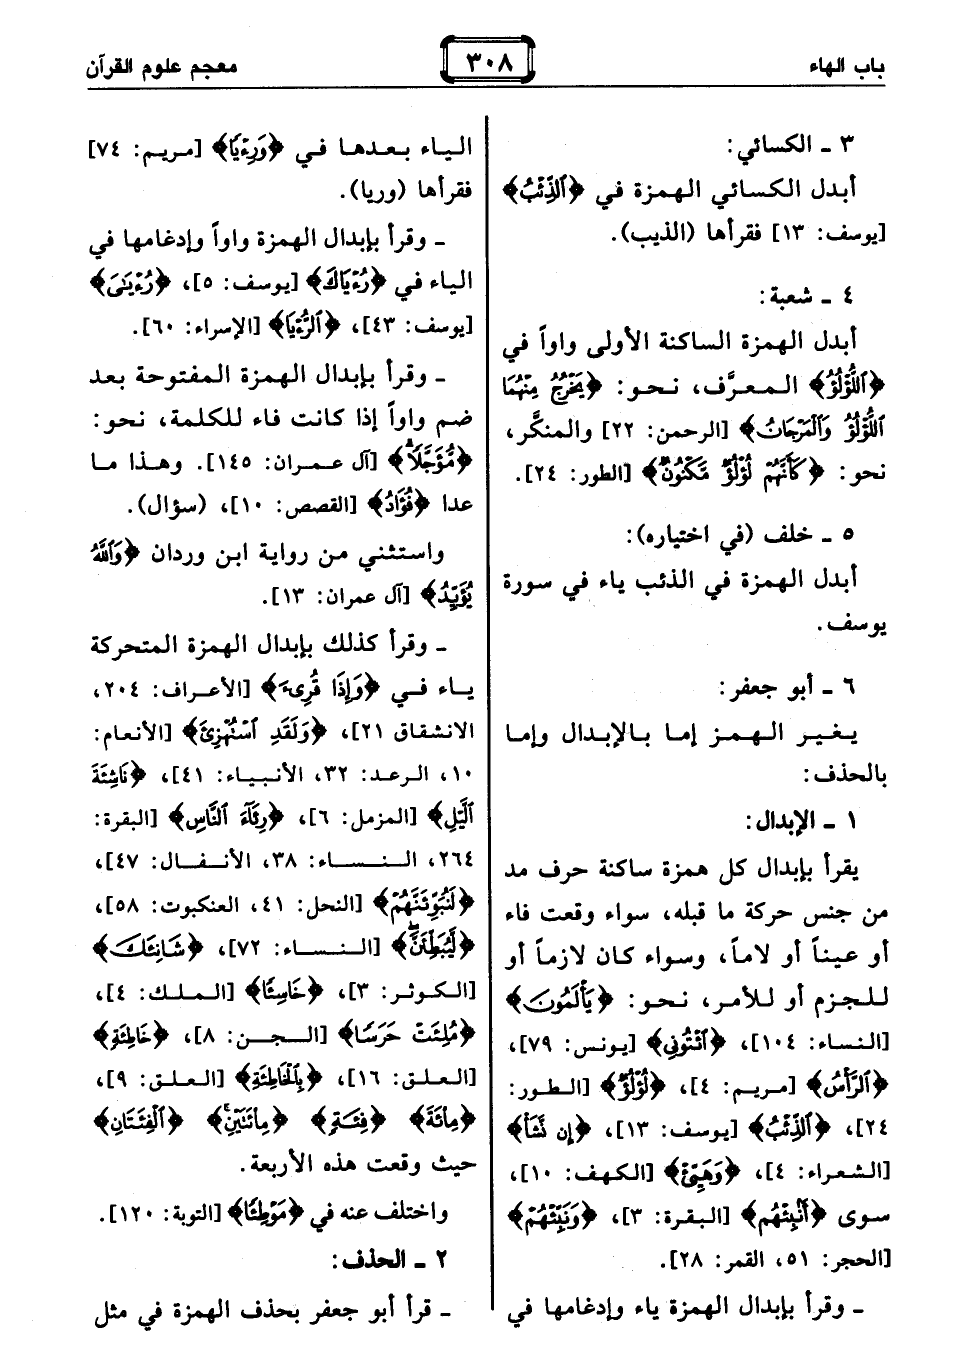 باب الهاء
٣٠٨
معجم علوم القرآن
٣ ـ الكسائي:
أبدل الكسائي الهمزة في ﴿ٱلذِّئْبُ﴾
[يوسف: ١٣] فقرأها (الذيب).
٤ ـ شعبة:
أبدل الهمزة الساكنة الأولى واواً في
﴿ٱللُّؤْلُؤُ﴾ المعرَّف، نحو: ﴿يَخْرُجُ مِنْهُمَا
ٱللُّؤْلُؤُ وَٱلْمَرْجَانُ﴾ [الرحمن: ٢٢] والمنكَّر،
نحو: ﴿كَأَنَّهُمْ لُؤْلُؤٌ مَّكْنُونٌ﴾ [الطور: ٢٤].
٥ ـ خلف (في اختياره):
أبدل الهمزة في الذئب ياء في سورة
يوسف.
٦ ـ أبو جعفر:
يغير الهمز إما بالإبدال وإما
بالحذف:
١ ـ الإبدال:
يقرأ بإبدال كل همزة ساكنة حرف مد
من جنس حركة ما قبله، سواء وقعت فاء
أو عيناً أو لاماً، وسواء كان لازماً أو
للجزم أو للأمر، نحو: ﴿يَأْلَمُونَ﴾
[النساء: ١٠٤]، ﴿ٱئْتُونِي﴾ [يونس: ٧٩]،
﴿ٱلرَّأْسُ﴾ [مريم: ٤]، ﴿لُؤْلُؤٌ﴾ [الطور:
٢٤]، ﴿ٱلذِّئْبُ﴾ [يوسف: ١٣]، ﴿إِن نَّشَأْ﴾
[الشعراء: ٤]، ﴿وَهَيِّئْ﴾ [الكهف: ١٠]،
سوى ﴿أَنۢبِئْهُم﴾ [البقرة: ٣]، ﴿وَنَبِّئْهُمْ﴾
[الحجر: ٥١، القمر: ٢٨].
ـ وقرأ بإبدال الهمزة ياء وإدغامها في
الياء بعدها في ﴿وَرِءْيًا﴾ [مريم: ٧٤]
فقرأها (وريا).
ـ وقرأ بإبدال الهمزة واواً وإدغامها في
الياء في ﴿رُءْيَاكَ﴾ [يوسف: ٥]، ﴿رُءْيَـٰىَ﴾
[يوسف: ٤٣]، ﴿ٱلرُّءْيَا﴾ [الإسراء: ٦٠].
ـ وقرأ بإبدال الهمزة المفتوحة بعد
ضم واواً إذا كانت فاء للكلمة، نحو:
﴿مُّؤَجَّلًا﴾ [آل عمران: ١٤٥]. وهذا ما
عدا ﴿فُؤَادُ﴾ [القصص: ١٠]، (سؤال).
واستثني من رواية ابن وردان ﴿وَٱللَّهُ
يُؤَيِّدُ﴾ [آل عمران: ١٣].
ـ وقرأ كذلك بإبدال الهمزة المتحركة
ياء في ﴿وَإِذَا قُرِىءَ﴾ [الأعراف: ٢٠٤،
الانشقاق ٢١]، ﴿وَلَقَدِ ٱسْتُهْزِئَ﴾ [الأنعام:
١٠، الرعد: ٣٢، الأنبياء: ٤١]، ﴿نَاشِئَةَ
ٱلَّيْلِ﴾ [المزمل: ٦]، ﴿رِئَآءَ ٱلنَّاسِ﴾ [البقرة:
٢٦٤، النساء: ٣٨، الأنفال: ٤٧]،
﴿لَنُبَوِّئَنَّهُمْ﴾ [النحل: ٤١، العنكبوت: ٥٨]،
﴿لَّيُبَطِّئَنَّ﴾ [النساء: ٧٢]، ﴿شَانِئَكَ﴾
[الكوثر: ٣]، ﴿خَاسِئًا﴾ [الملك: ٤]،
﴿مُلِئَتْ حَرَسًا﴾ [الجن: ٨]، ﴿خَاطِئَةٍ﴾
[العلق: ١٦]، ﴿بِٱلْخَاطِئَةِ﴾ [العلق: ٩]،
﴿مِائَةَ﴾ ﴿فِئَةٍ﴾ ﴿مِائَتَيْنِ﴾ ﴿ٱلْفِئَتَانِ﴾
حيث وقعت هذه الأربعة.
واختلف عنه في ﴿مَوْطِئًا﴾ [التوبة: ١٢٠].
٢ ـ الحذف:
ـ قرأ أبو جعفر بحذف الهمزة في مثل